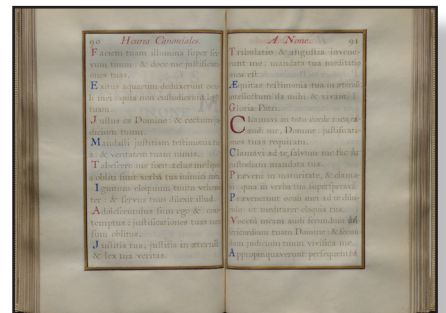 90 Heures Canoniales.
Faciem tuam illumina super ser-
vum tuum: & doce me justifica-
ones tuas.
Exitus aquarum deduxerunt ocu-
li mei: quia non custodierunt legem
tuam.
Justus es Domine: & rectum ju-
dicium tuum.
Mandasti justitiam testimonia tu-
a: & veritatem tuam nimis.
Tabescere me fecit zelus meus: qui-
a obliti sunt verba tua inimici mei.
Ignitum eloquium tuum vehemen-
ter: & servus tuus dilexit illud.
Adolescentulus sum ego & con-
temptus: justificationes tuas non
sum oblitus.
Justitia tua, justitia in æternum:
& lex tua veritas.
A None. 91
Tribulatio & angustia invene-
runt me: mandata tua meditatio
mea est.
Æquitas testimonia tua in æternum:
intellectum da mihi & vivam.
Gloria Patri.
Clamavi in toto corde meo, ex-
audi me, Domine: justificatio-
nes tuas requiram.
Clamavi ad te, salvum me fac: ut
custodiam mandata tua.
Præveni in maturitate, & clama-
vi: quia in verba tua supersperavi.
Prævenerunt oculi mei ad te dilu-
culo: ut meditarer eloquia tua.
Vocem meam audi secundum mi-
sericordiam tuam Domine: & secun-
dum judicium tuum vivifica me.
Appropinquaverunt persequentes